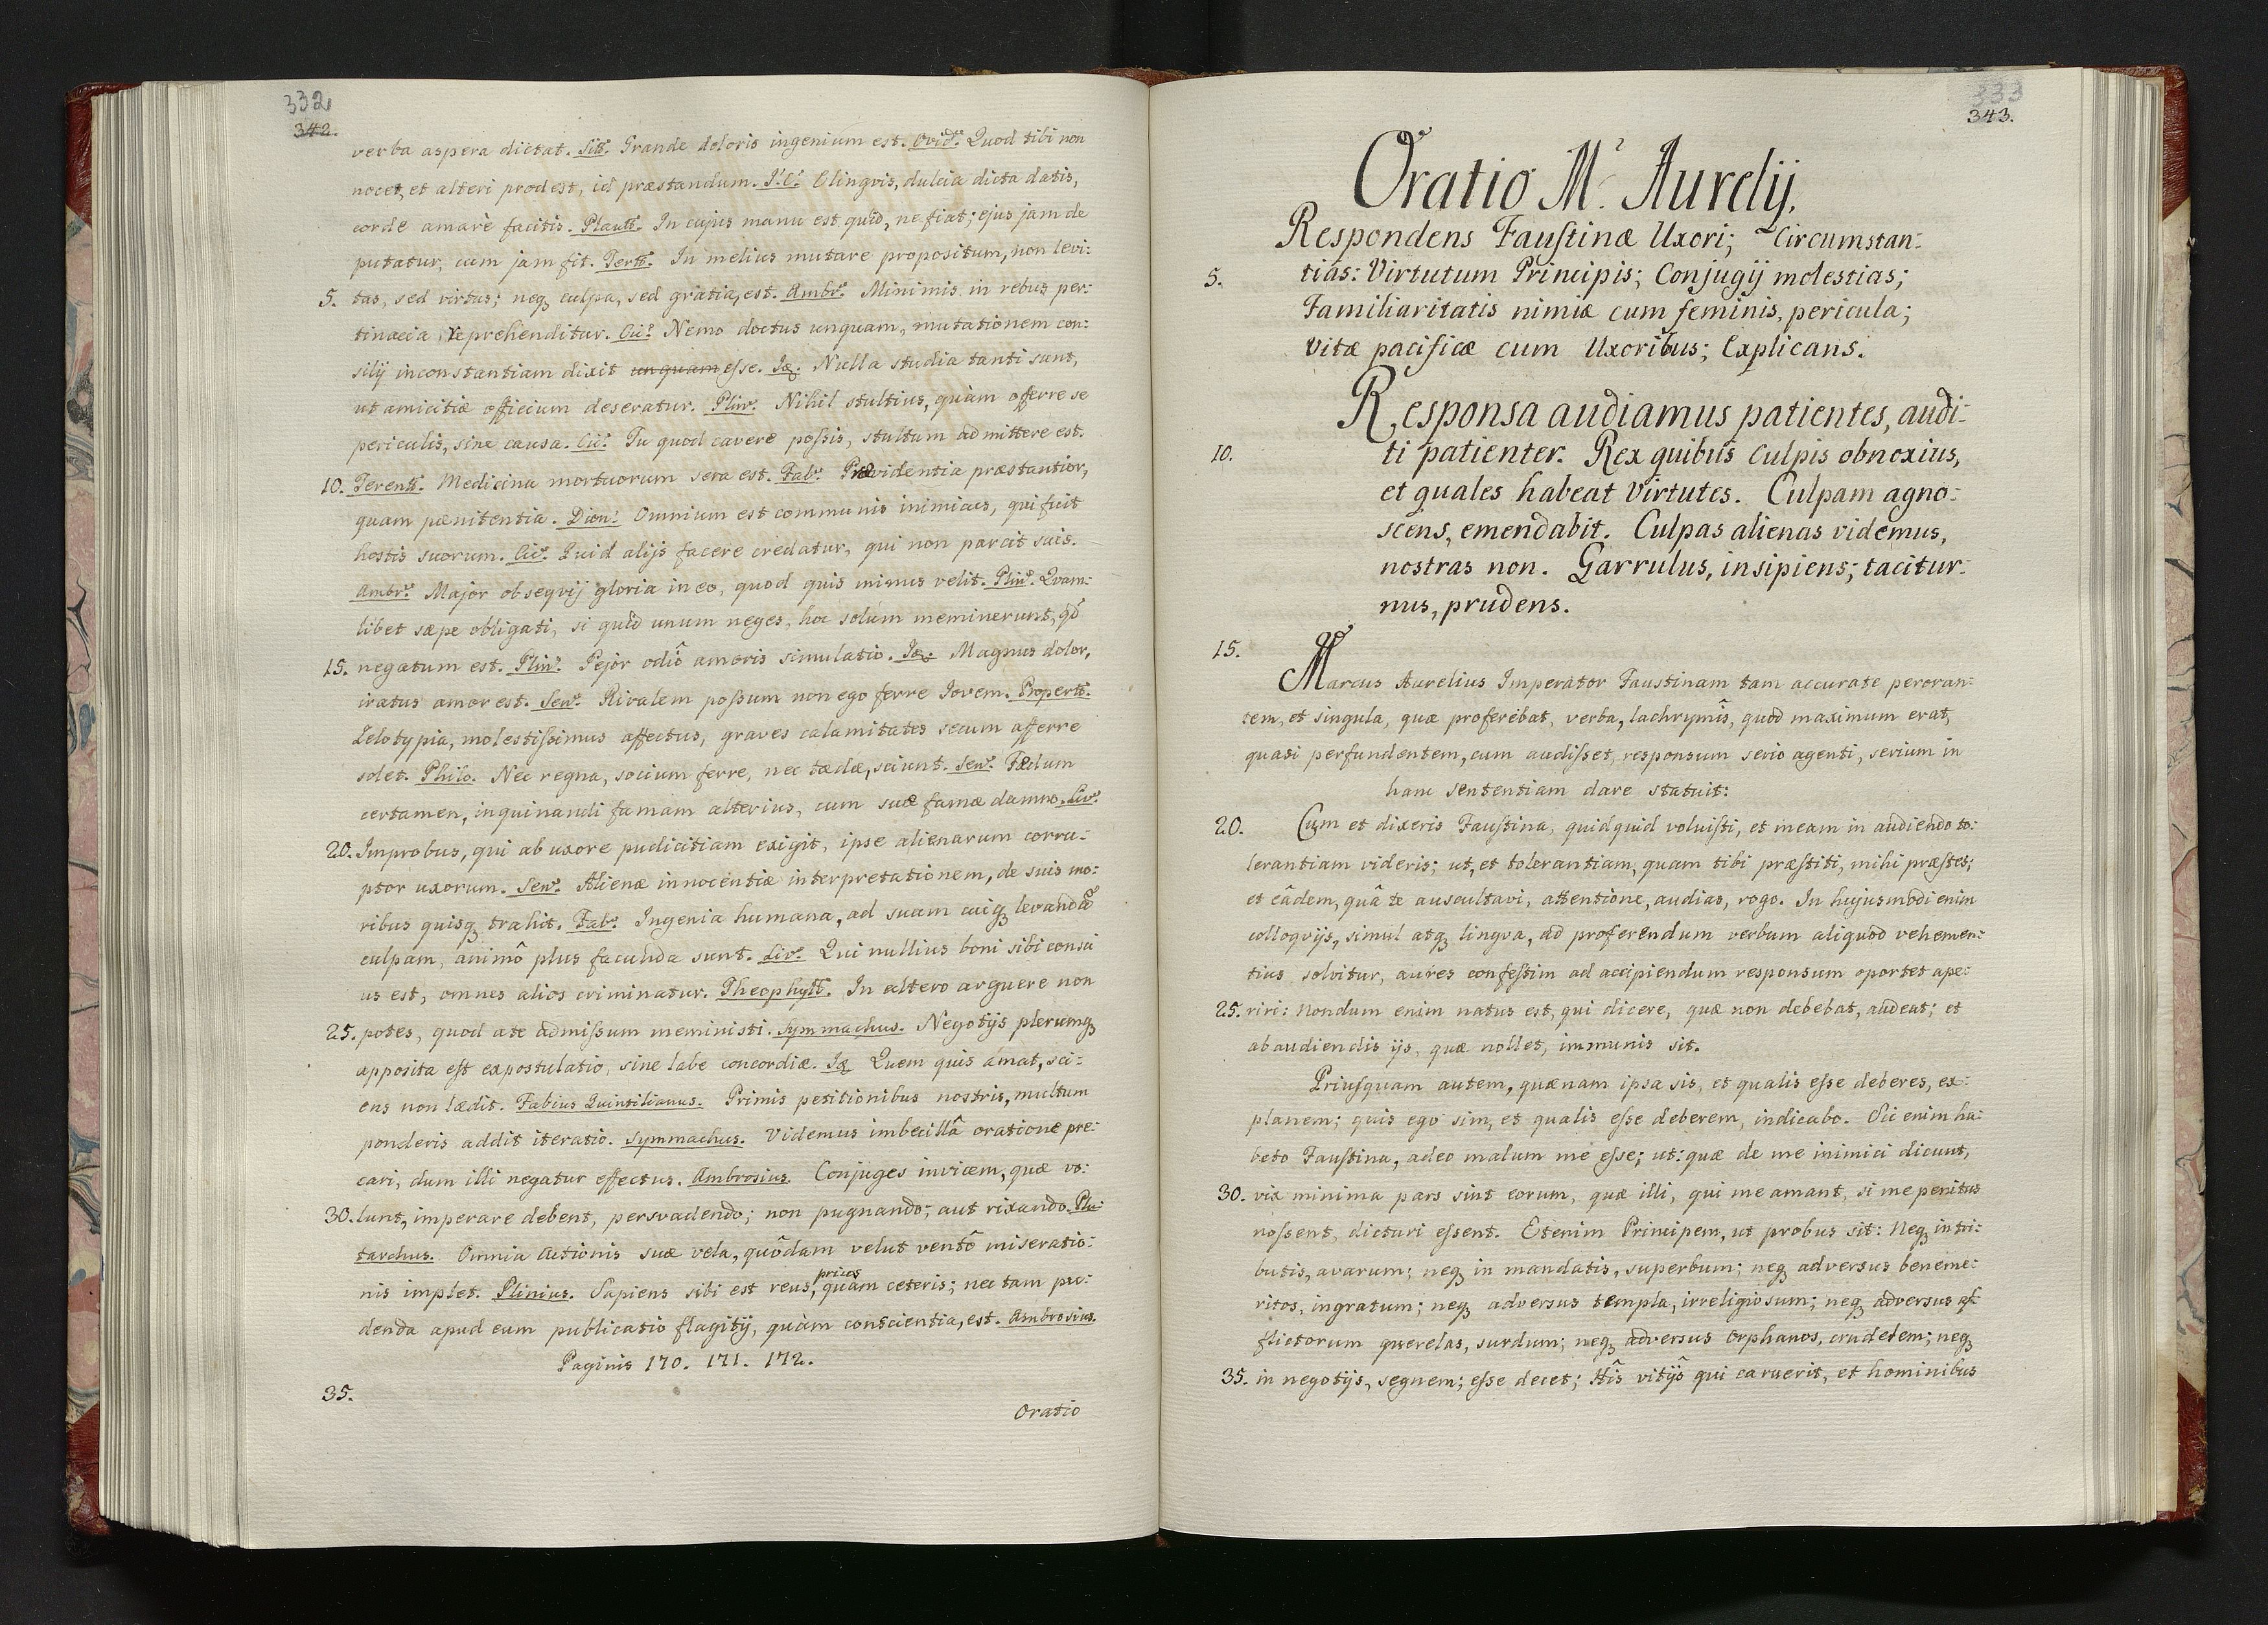 332
342.
verba aspera dictat. Sill. Grande doloris ingenium est. Ovid. Quod tibi non
nocet, et alteri prodest, id præstandum. I.C. Elingvis, dulcia dicta datis,
corde amarè facitis. Plaut. In cujus manu est quid, ne fiat; ejus jam de
putatur, cum jam fit. Tert. In melius mutare propositum, non levi:
5. tas, sed virtus; neq, culpa, sed gratia, est. Ambr. Minimis in rebus per:
tinacia, reprehenditur. Cic. Nemo doctus unquam, mutationem con:
silij inconstantiam dixit unquam esse. Iq. Nulla studia tanti sunt,
ut amicitiæ officium deseratur. Plin. Nihil stultius, quàm offerre se
periculis, sine causa. Cic. Tu quod cavere poſsis, stultum admittere est.
10. Terent. Medicina mortuorum sera est. Fab. Providentia præstantior,
quam pænitentia. Dion. Omnium est communis inimicus, qui fuit
hostis suorum. Cic. Quid alijs facere credatur, qui non parcit suis.
Ambr. Major obseqvij gloria in eo, quod quis minus velit. Plin. Qvam:
libet sæpe obligati, si quid unum neges, hoc solùm meminerunt, qd
15. negatum est. Plin. Pejor odiô amoris simulatio. Iq. Magnus dolor,
iratus amor est. Sen. Rivalem poſsum non ego ferre Iovem. Propert.
Zelotypia, molestiſsimus affectus, graves calamitates secum afferre
solet. Philo. Nec regna, socium ferre, nec tædæ, sciunt. Sen. Fædum
certamen, inquinandi famam alterius, cum suæ famæ damno. Liv.
20. Improbus, qui ab uxore pudicitiam exigit, ipse alienarum corru:
ptor uxorum. Sen. Alienæ innocentiæ interpretationem, de suis mo:
ribus quisq, trahit. Fab. Ingenia humana, ad suam cuiq, levandã
culpam, animô plus facunda sunt. Liv. Qui nullius boni sibi consci
us est, omnes alios criminatur. Theophyll. In altero arguere non
25. potes, quod a te admiſsum meministi. Symmachus. Negotijs plerumq,
apposita eſt expostulatio, sine labe concordiæ. Iq. Quem quis amat, sci:
ens non lædit. Fabius Quintilianus. Primis petitionibus nostris, multum
ponderis addit iteratio. Symmachus. Videmus imbecillâ oratione pre:
cari, dum illi negatur effectus. Ambrosius. Conjuges invicem, quæ vo:
30. lunt, imperare debent, persvadendo; non pugnando; aut rixando. Plu:
tarchus. Omnia Actionis suæ vela, quôdam velut ventô miseratio:
nis implet. Plinius. Sapiens sibi est reus, prius quam ceteris; nec tam pu:
denda apud eum publicatio flagitij, quàm conscientia, est. Ambrosius.
Paginis 170. 171. 172.
35.
Oratio
333
343.
Oratio M. Aurelij.
Respondens Fauſtinæ Uxori; Circumstan:
5. tias: Virtutum Principis; Conjugij molestias;
Familiaritatis nimiæ cum feminis, pericula;
Vitæ pacificæ cum Uxoribus; Explicans.
Responsa audiamus patientes, audi:
10. ti patienter. Rex quibus Culpis obnoxius,
et quales habeat Virtutes. Culpam agno:
scens, emendabit. Culpas alienas videmus,
nostras non. Garrulus, insipiens; tacitur:
nus, prudens.
15.
Marcus Aurelius Imperator Faustinam tam accurate peroran:
tem, et singula, quæ proferebat, verba, lachrymîs, quod maximum erat,
quasi perfundentem, cum audiſset, responsum serio agenti, serium in
hanc sententiam dare statuit:
20. Cum et dixeris Fauſtina, quidquid voluiſti, et meam in audiendo to:
lerantiam videris; ut, et tolerantiam, quam tibi præſtiti, mihi præſtes;
et eâdem, quâ te auscultavi, attentione, audias, rogo. In hujusmodi enim
colloqvijs, simul atq, lingva, ad proferendum verbum aliquod vehemen:
tius solvitur, aures confeſtim ad accipiendum responsum oportet ape:
25. riri: Nondum enim natus est, qui dicere, quæ non debebat, audeat; et
ab audiendis ijs, quæ nollet, immunis sit.
Priuſquam autem, quænam ipsa sis, et qualis eſse deberes, ex:
planem; quis ego sim, et qualis eſse deberem, indicabo. Sic enim ha:
beto Fauſtina, adeo malum me eſse; ut: quæ de me inimici dicunt,
30. vix minima pars sint eorum, quæ illi, qui me amant, si me penitus
noſsent, dictari eſsent. Etenim Principem, ut probus sit: Neq, in tri:
butis, avarum; neq, in mandatis, superbum; neq, adversus beneme:
ritos, ingratum; neq, adversus templa, irreligiosum; neq, adversus af:
flictorum querelas, surdum; neq, adversus Orphanos, crudelem; neq,
35. in negotijs, segnem; eſse decet; Hîs vitijs qui caruerit, et hominibus